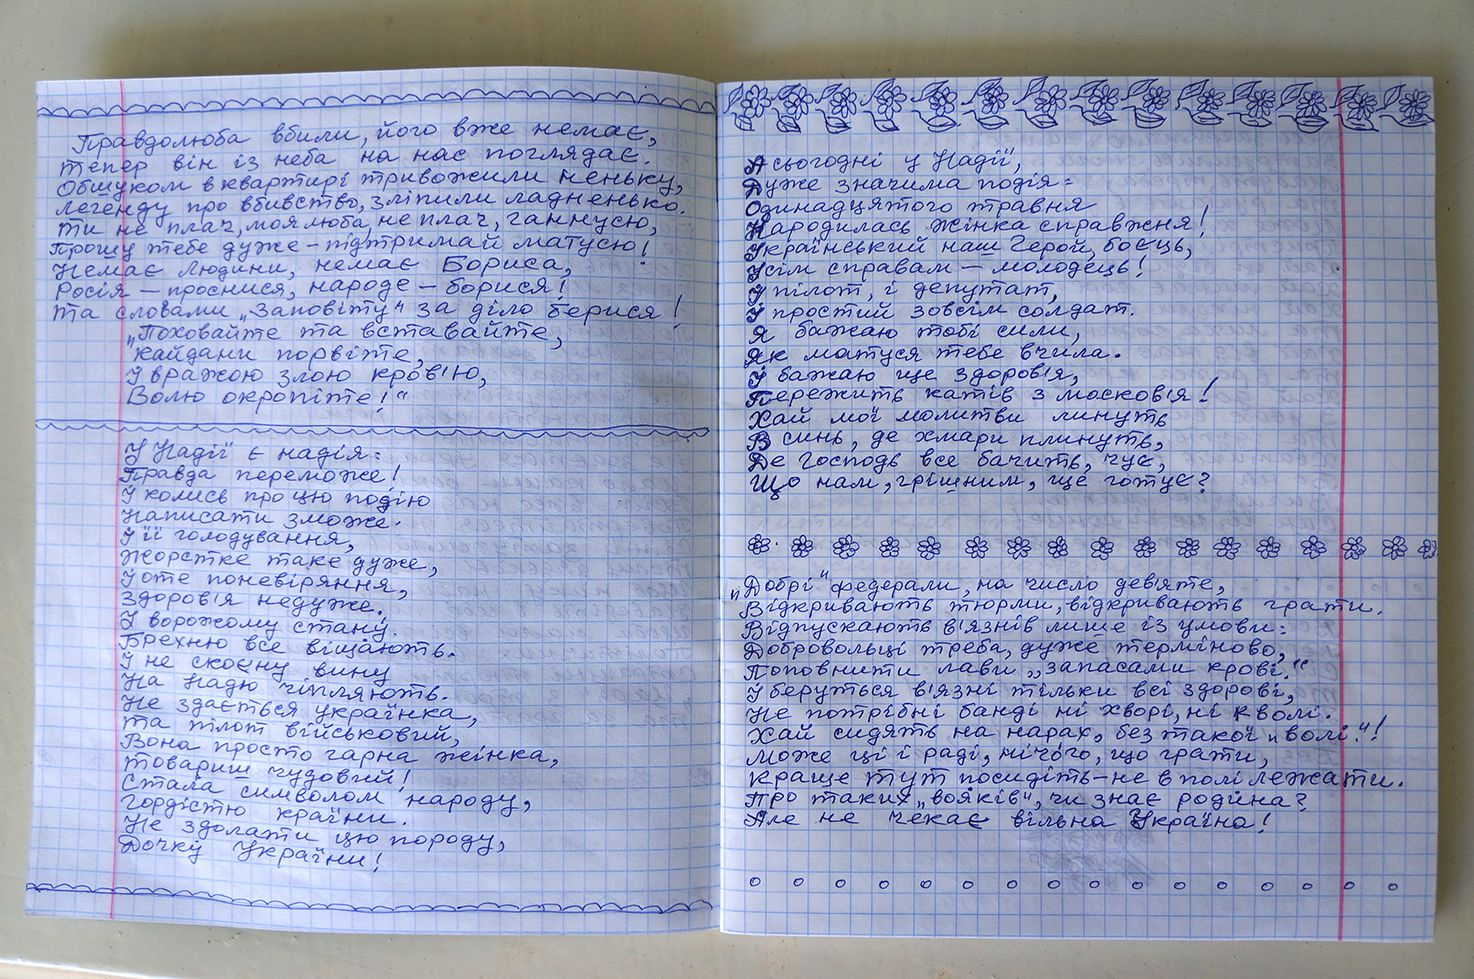 Правдолюба вбили, його вже немає,
тепер він із неба на нас поглядає.
Обшуком в квартирі тривожили неньку,
легенду про вбивство, зліпили ладненько.
Ти не плач, моя люба, не плач, Ганнусю,
Прошу тебе дуже – підтримай матусю!
Немає Людини, немає Бориса,
Росія – проснися, народе – борися!
Та словами „Заповіту“ за діло берися!
„Поховайте та вставайте,
кайдани порвіте,
І вражою злою кров'ю,
Волю окропіте!“
У Надії є надія:
Правда переможе!
І колись про цю подію
Написати зможе.
І її голодування,
Жорстке таке дуже,
І оте поневіряння,
Здоров'я недуже.
І ворожому стану.
Брехню все віщають.
І не скоєну вину
На Надю чіпляють.
Не здається українка,
та пілот військовий,
Вона просто гарна жінка,
товариш чудовий!
Стала символом народу,
Гордістю країни.
Не здолати цю породу,
Дочку України!
А сьогодні у Надії,
Дуже значима подія:
Одинадцятого травня
Народилась жінка справжня!
Український наш Герой, боєць,
Усім справам – молодець!
І пілот, і депутат,
І простий зовсім солдат.
Я бажаю тобі сили,
Як матуся тебе вчила.
І бажаю ще здоров'я,
Пережить катів з московія!
Хай мої молитви линуть
В синь, де хмари плинуть,
Де Господь все бачить, чує,
Що нам, грішним, ще готує?
„Добрі“ федерали, на число дев'яте,
Відкривають тюрми, відкривають грати.
Відпускають в'язнів лише із умови:
Добровольці треба, дуже терміново,
Поповнити лави „запасами крові.“
І беруться в'язні тільки всі здорові,
Не потрібні банді ні хворі, ні кволі.
Хай сидять на нарах, без такої „волі.“!
Може ці і раді, нічого, що грати,
Краще тут посидіть – не в полі лежати.
Про таких „вояків“, чи знає родина?
Але не чекає вільна Україна!